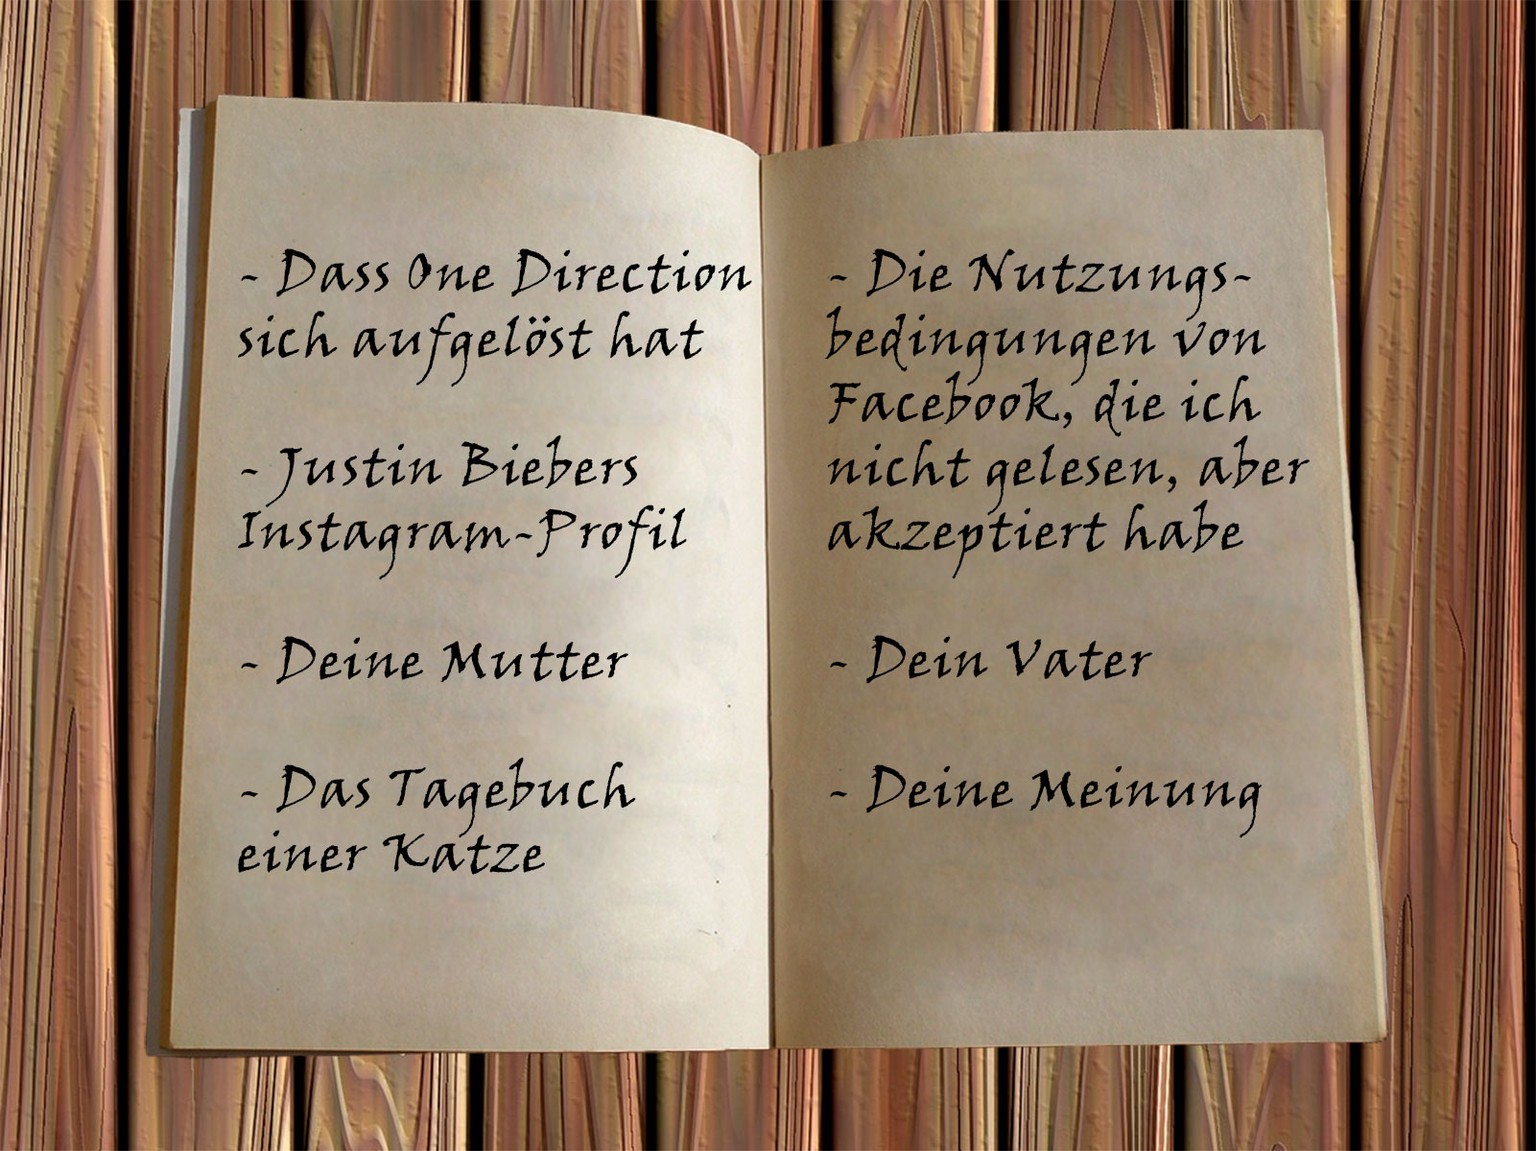 - Dass One Direction
sich aufgelöst hat
- Justin Biebers
Instagram-Profil
- Deine Mutter
- Das Tagebuch
einer Katze
- Die Nutzungs-
bedingungen von
Facebook, die ich
nicht gelesen, aber
akzeptiert habe
- Dein Vater
- Deine Meinung